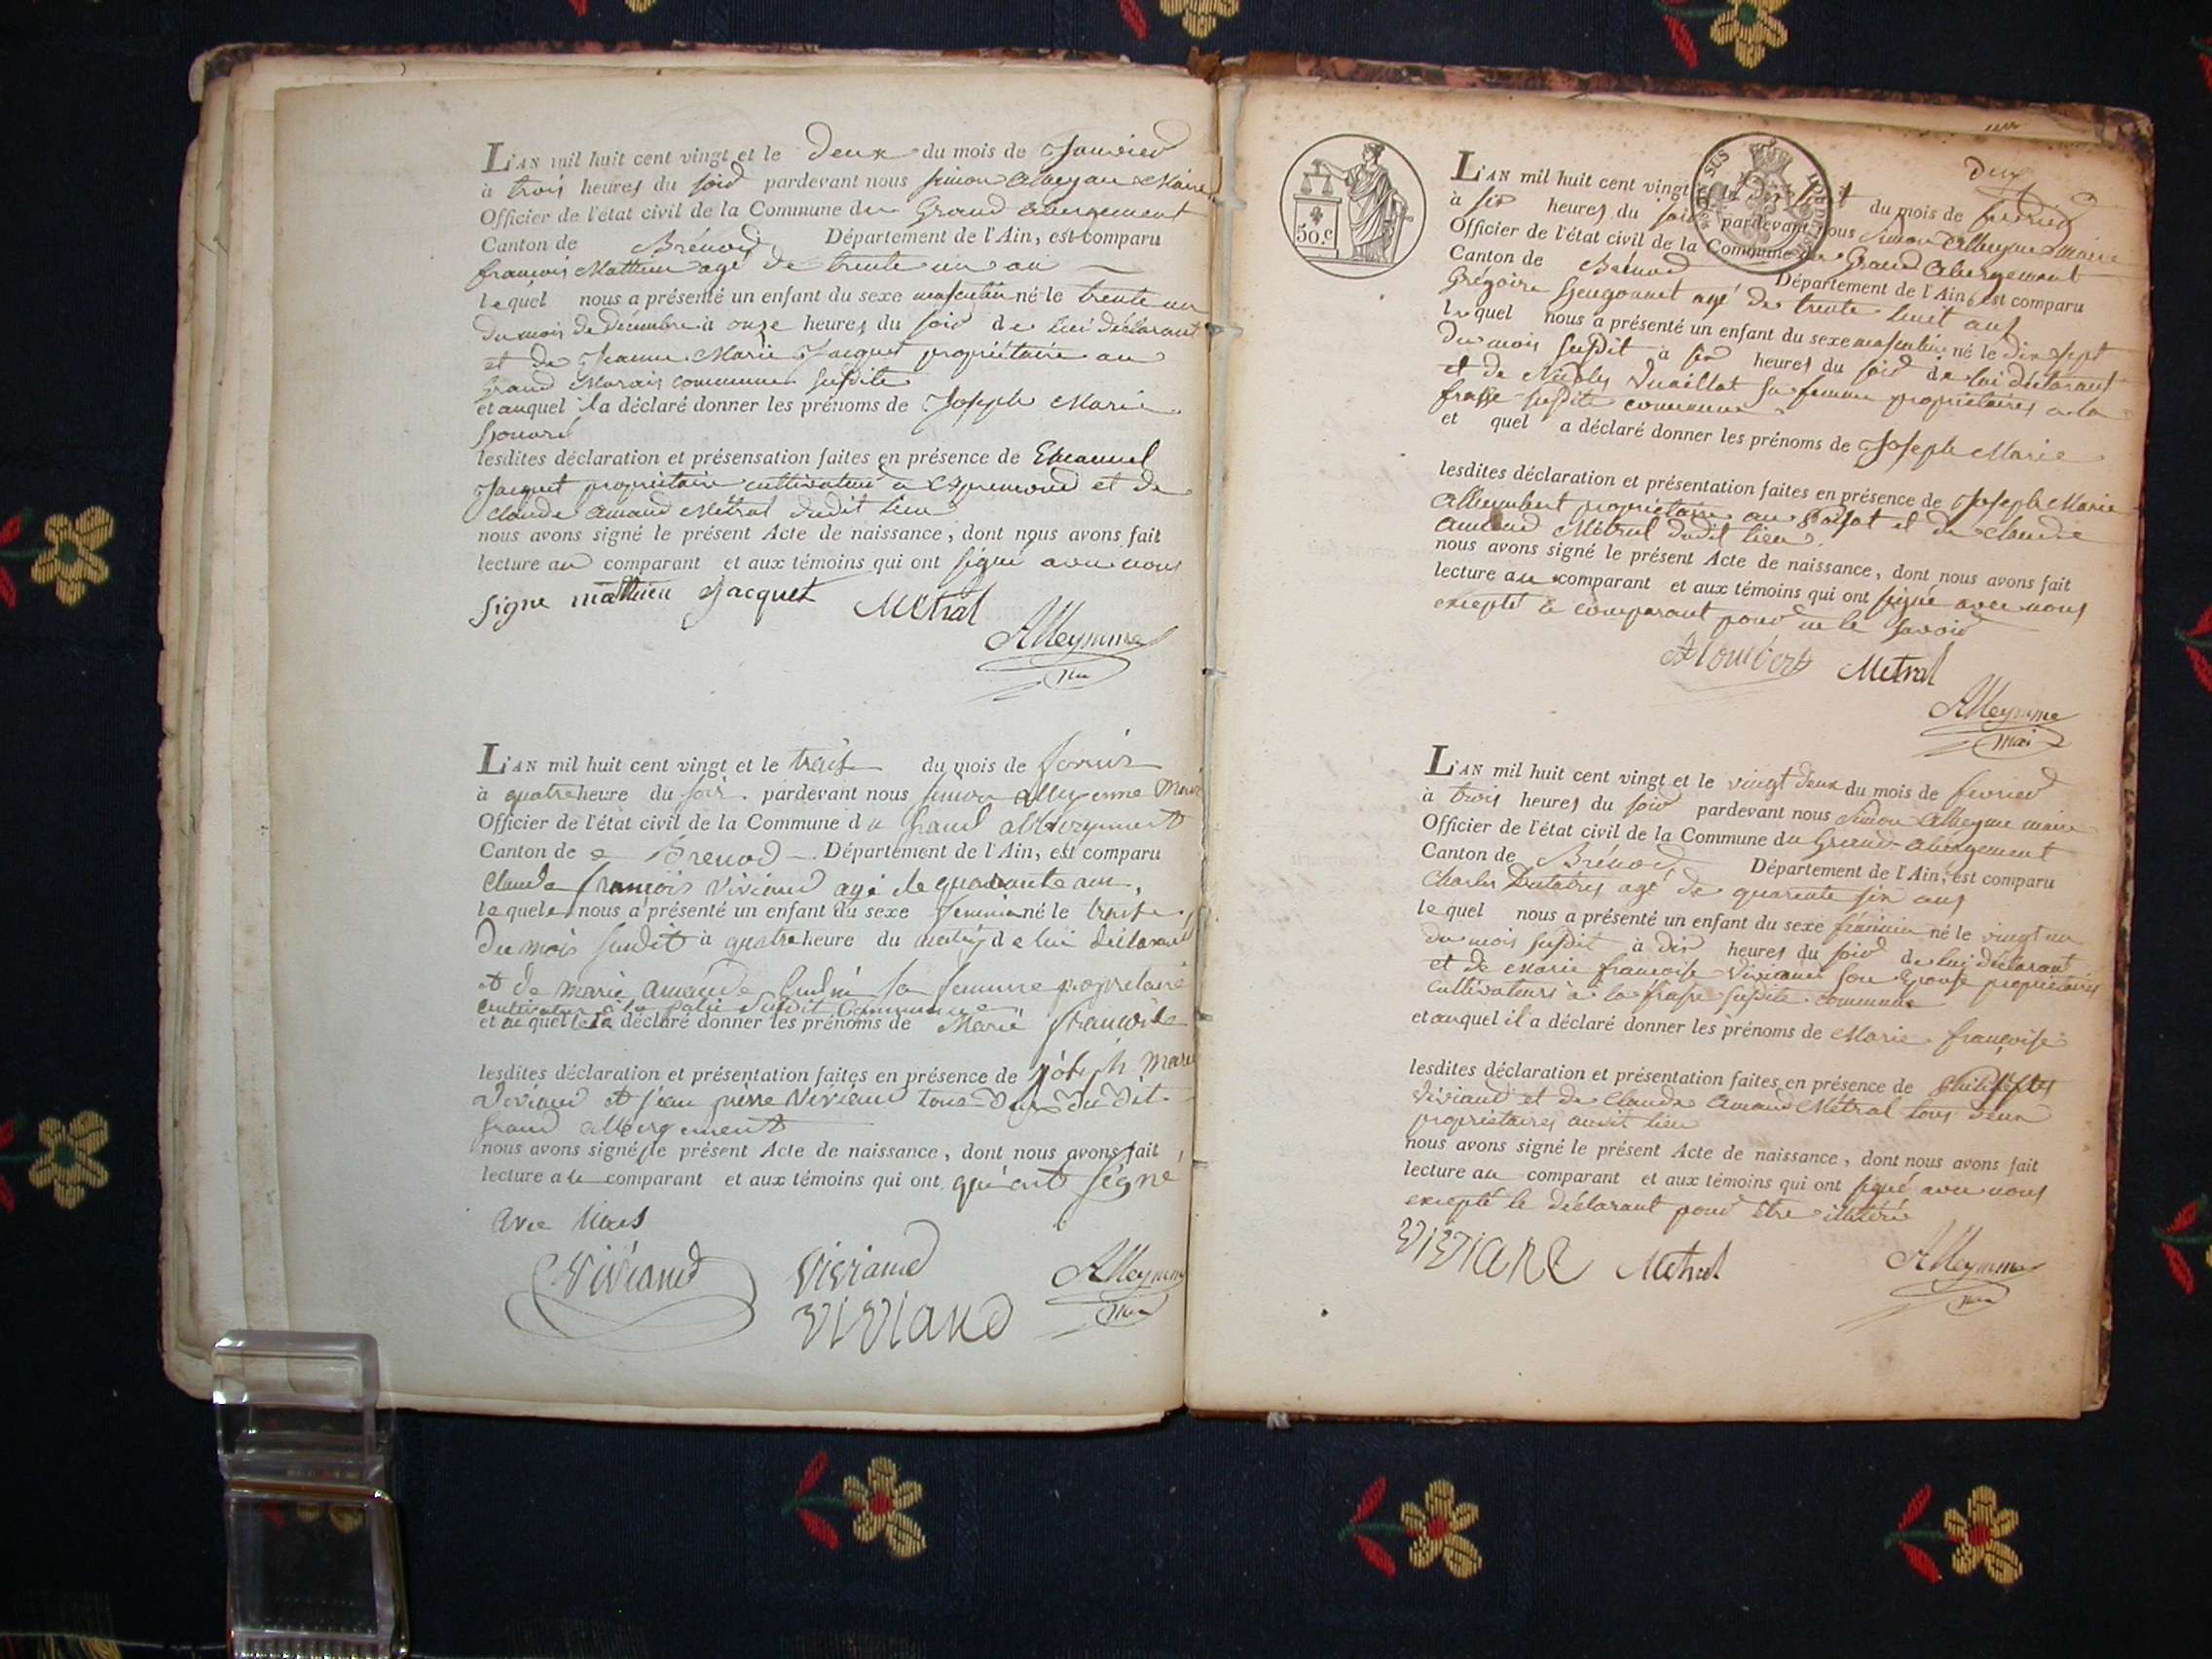 L'AN mil huit cent vingt et le deux du mois de Janvier
à trois heures du soir pardevant nous Simon Alleyme Maire
Officier de l'état civil de la Commune du Grand abergement
Canton de Brénod Département de l'Ain, est comparu
françois Mathieu agé de trente un an
lequel nous a présenté un enfant du sexe masculin né le trente un
du mois de décembre à onze heures du soir de lui déclarant
et de Jeanne Marie Jacquet propriétaire au
Grand Marais commune susdite
et auquel il a déclaré donner les prénoms de Joseph Marie
lesdites déclaration et présensation faites en présence de Emanuel
Jacquet propriétaire cultivateur a et de
Claude Amand Métral dudit lieu
nous avons signé le présent Acte de naissance, dont nous avons fait
lecture au comparant et aux témoins qui ont signé avec nous
Signe mathieu Jacquet Metral
Alleymme
L'AN mil huit cent vingt et le trois du mois de
à quatre heure du soir pardevant nous Simon alleymme Maire
Officier de l'état civil de la Commune du Grand abbergement
Canton de Brenod Département de l'Ain, est comparu
Claude françois Viviand agé de quarante ans,
lequel nous a présenté un enfant du sexe feminin né le trois
du mois susdit à quatre heure du matin de lui déclarant
et de marie amande sa femme propriétaire
cultivateur à la susdit Commune
et auquel il a déclaré donner les prénoms de Marie françoise
lesdites déclaration et présentation faites en présence de joseph marie
Viviand et jean pierre Viviand tous deux du dit
Grand abbergement
nous avons signé le présent Acte de naissance, dont nous avons fait
lecture au comparant et aux témoins qui ont qui ont signé
avec nous
Viviand Viviand Alleymme
Viviand
deux
L'AN mil huit cent vingt et le dix sept du mois de février
à six heures du soir pardevant nous Simon Alleyme maire
Officier de l'état civil de la Commune du Grand Abergement
Canton de Brénod Département de l'Ain, est comparu
Grégoire agé de trente huit ans
lequel nous a présenté un enfant du sexe masculin né le dix sept
du mois susdit à six heures du soir de lui déclarant
et de Vuaillat sa femme propriétaires a la
frasse susdite commune
et quel a déclaré donner les prénoms de Joseph Marie
lesdites déclaration et présentation faites en présence de Joseph Marie
propriétaire au et de Claude
Amand Métral dudit lieu
nous avons signé le présent Acte de naissance, dont nous avons fait
lecture au comparant et aux témoins qui ont signé avec nous
excepté le comparant pour ne le savoir
Alombert Metral
Alleymme
mai
50.c
L'AN mil huit cent vingt et le vingt deux du mois de février
à trois heures du soir pardevant nous Simon Alleyme maire
Officier de l'état civil de la Commune du Grand abergement
Canton de Brénod Département de l'Ain, est comparu
Charles agé de quarente six ans
lequel nous a présenté un enfant du sexe féminin né le vingt un
du mois susdit à dix heures du soir de lui déclarant
et de Marie françoise Viviand son Epouse propriétaires
cultivateurs à la frasse susdite commune
et auquel il a déclaré donner les prénoms de Marie françoise
lesdites déclaration et présentation faites en présence de
Viviand et de Claude Amand Métral tous deux
propriétaires audit lieu
nous avons signé le présent Acte de naissance, dont nous avons fait
lecture au comparant et aux témoins qui ont signé avec nous
excepté le déclarant pour être illitéré
Viviand Metral Alleymme